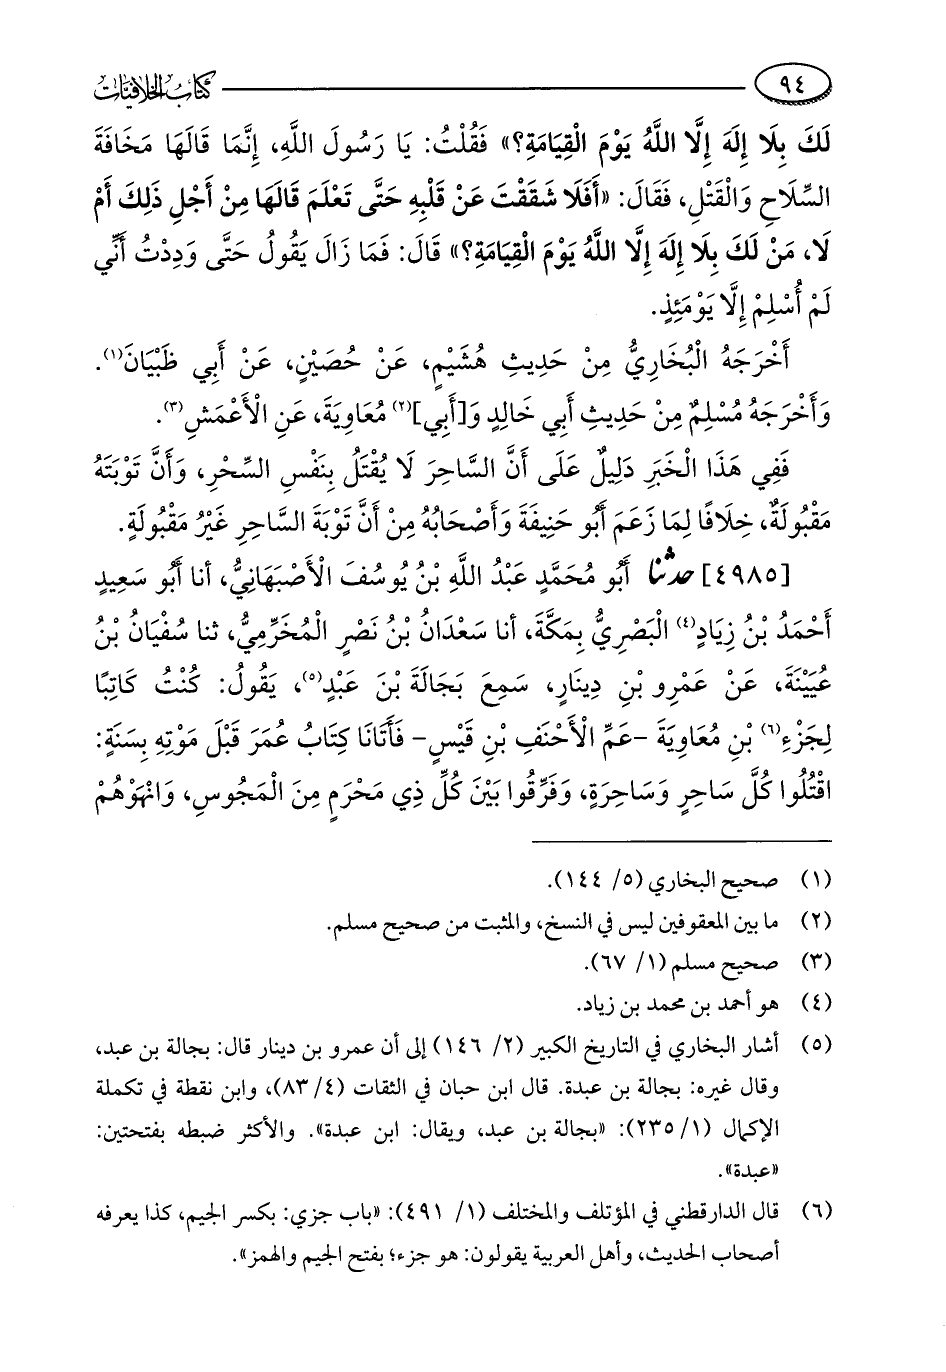 ٩٤
كتاب الخلافيات
لَكَ بِلَا إِلَهَ إِلَّا اللَّهُ يَوْمَ الْقِيَامَةِ؟» فَقُلْتُ: يَا رَسُولَ اللَّهِ، إِنَّمَا قَالَهَا مَخَافَةَ
السِّلَاحِ وَالْقَتْلِ، فَقَالَ: «أَفَلَا شَقَقْتَ عَنْ قَلْبِهِ حَتَّى تَعْلَمَ قَالَهَا مِنْ أَجْلِ ذَلِكَ أَمْ
لَا، مَنْ لَكَ بِلَا إِلَهَ إِلَّا اللَّهُ يَوْمَ الْقِيَامَةِ؟» قَالَ: فَمَا زَالَ يَقُولُ حَتَّى وَدِدْتُ أَنِّي
لَمْ أُسْلِمْ إِلَّا يَوْمَئِذٍ.
أَخْرَجَهُ الْبُخَارِيُّ مِنْ حَدِيثِ هُشَيْمٍ، عَنْ حُصَيْنٍ، عَنْ أَبِي ظَبْيَانَ(١).
وَأَخْرَجَهُ مُسْلِمٌ مِنْ حَدِيثِ أَبِي خَالِدٍ وَ[أَبِي](٢) مُعَاوِيَةَ، عَنِ الْأَعْمَشِ(٣).
فَفِي هَذَا الْخَبَرِ دَلِيلٌ عَلَى أَنَّ السَّاحِرَ لَا يُقْتَلُ بِنَفْسِ السِّحْرِ، وَأَنَّ تَوْبَتَهُ
مَقْبُولَةٌ، خِلَافًا لِمَا زَعَمَ أَبُو حَنِيفَةَ وَأَصْحَابُهُ مِنْ أَنَّ تَوْبَةَ السَّاحِرِ غَيْرُ مَقْبُولَةٍ.
[٤٩٨٥] حدثنا أَبُو مُحَمَّدٍ عَبْدُ اللَّهِ بْنُ يُوسُفَ الْأَصْبَهَانِيُّ، أنا أَبُو سَعِيدٍ
أَحْمَدُ بْنُ زِيَادٍ(٤) الْبَصْرِيُّ بِمَكَّةَ، أنا سَعْدَانُ بْنُ نَصْرٍ الْمُخَرِّمِيُّ، ثنا سُفْيَانُ بْنُ
عُيَيْنَةَ، عَنْ عَمْرِو بْنِ دِينَارٍ، سَمِعَ بَجَالَةَ بْنَ عَبْدٍ(٥)، يَقُولُ: كُنْتُ كَاتِبًا
لِجَزْءِ(٦) بْنِ مُعَاوِيَةَ -عَمِّ الْأَحْنَفِ بْنِ قَيْسٍ- فَأَتَانَا كِتَابُ عُمَرَ قَبْلَ مَوْتِهِ بِسَنَةٍ:
اقْتُلُوا كُلَّ سَاحِرٍ وَسَاحِرَةٍ، وَفَرِّقُوا بَيْنَ كُلِّ ذِي مَحْرَمٍ مِنَ الْمَجُوسِ، وَانْهَوْهُمْ
(١) صحيح البخاري (٥/ ١٤٤).
(٢) ما بين المعقوفين ليس في النسخ، والمثبت من صحيح مسلم.
(٣) صحيح مسلم (١/ ٦٧).
(٤) هو أحمد بن محمد بن زياد.
(٥) أشار البخاري في التاريخ الكبير (٢/ ١٤٦) إلى أن عمرو بن دينار قال: بجالة بن عبد،
وقال غيره: بجالة بن عبدة. قال ابن حبان في الثقات (٤/ ٨٣)، وابن نقطة في تكملة
الإكمال (١/ ٢٣٥): «بجالة بن عبد، ويقال: ابن عبدة». والأكثر ضبطه بفتحتين:
«عبدة».
(٦) قال الدارقطني في المؤتلف والمختلف (١/ ٤٩١): «باب جزي: بكسر الجيم، كذا يعرفه
أصحاب الحديث، وأهل العربية يقولون: هو جزء؛ بفتح الجيم والهمز».